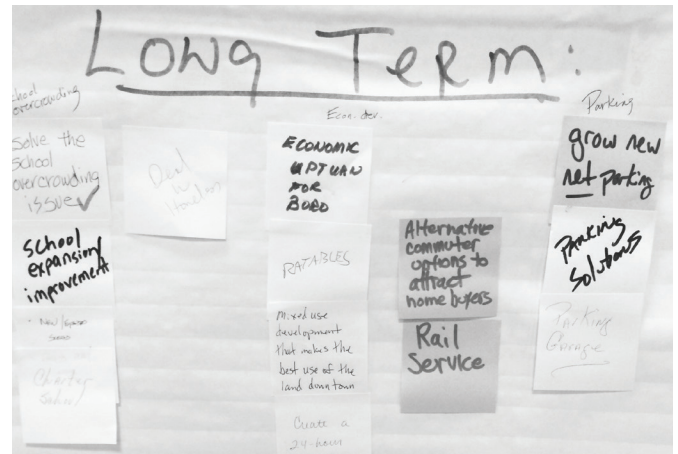 Long Term:
School
overcrowding
Solve the
school
overcrowding
issue
school
expansion/
improvement
New/
Charter
School
Deal
w
Econ. dev.
ECONOMIC
UPTURN
FOR
BORO
RATABLES
Mixed use
development
that makes the
best use of the
land downtown
Create a
24-hour
Alternative
commuter
options to
attract
home buyers
Rail
Service
Parking
grow new
net parking
Parking
Solutions
Parking
Garage